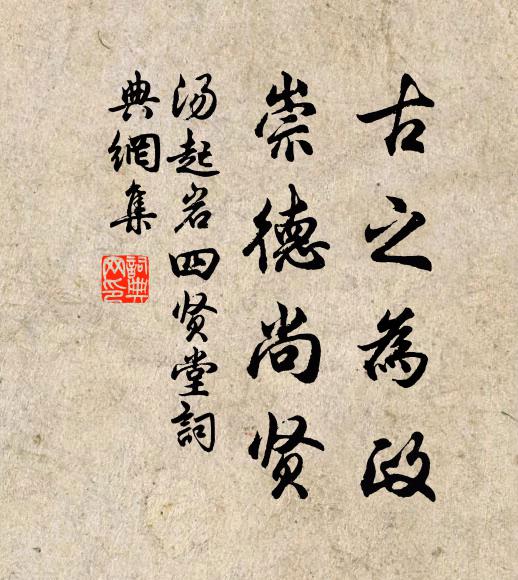 古之為政
崇德尚贤
汤起岩四贤堂詞
典網集
詞典
网印